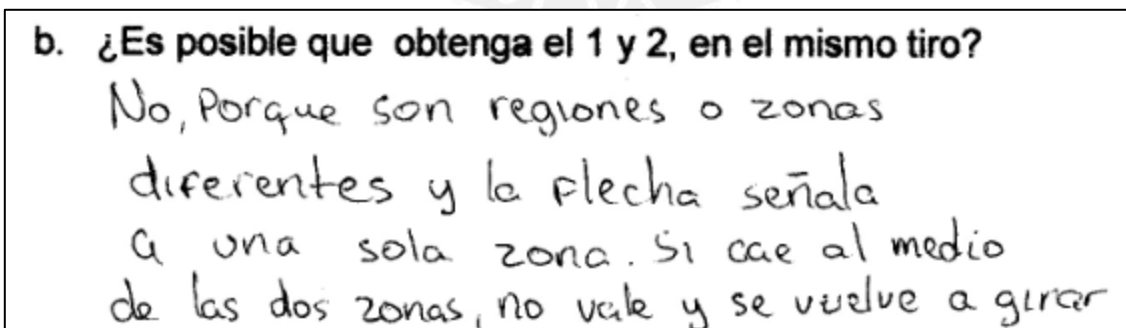 b. ¿Es posible que obtenga el 1 y 2, en el mismo tiro?
No, Porque son regiones o zonas
diferentes y la flecha señala
a una sola zona. Si cae al medio
de las dos zonas, no vale y se vuelve a girar